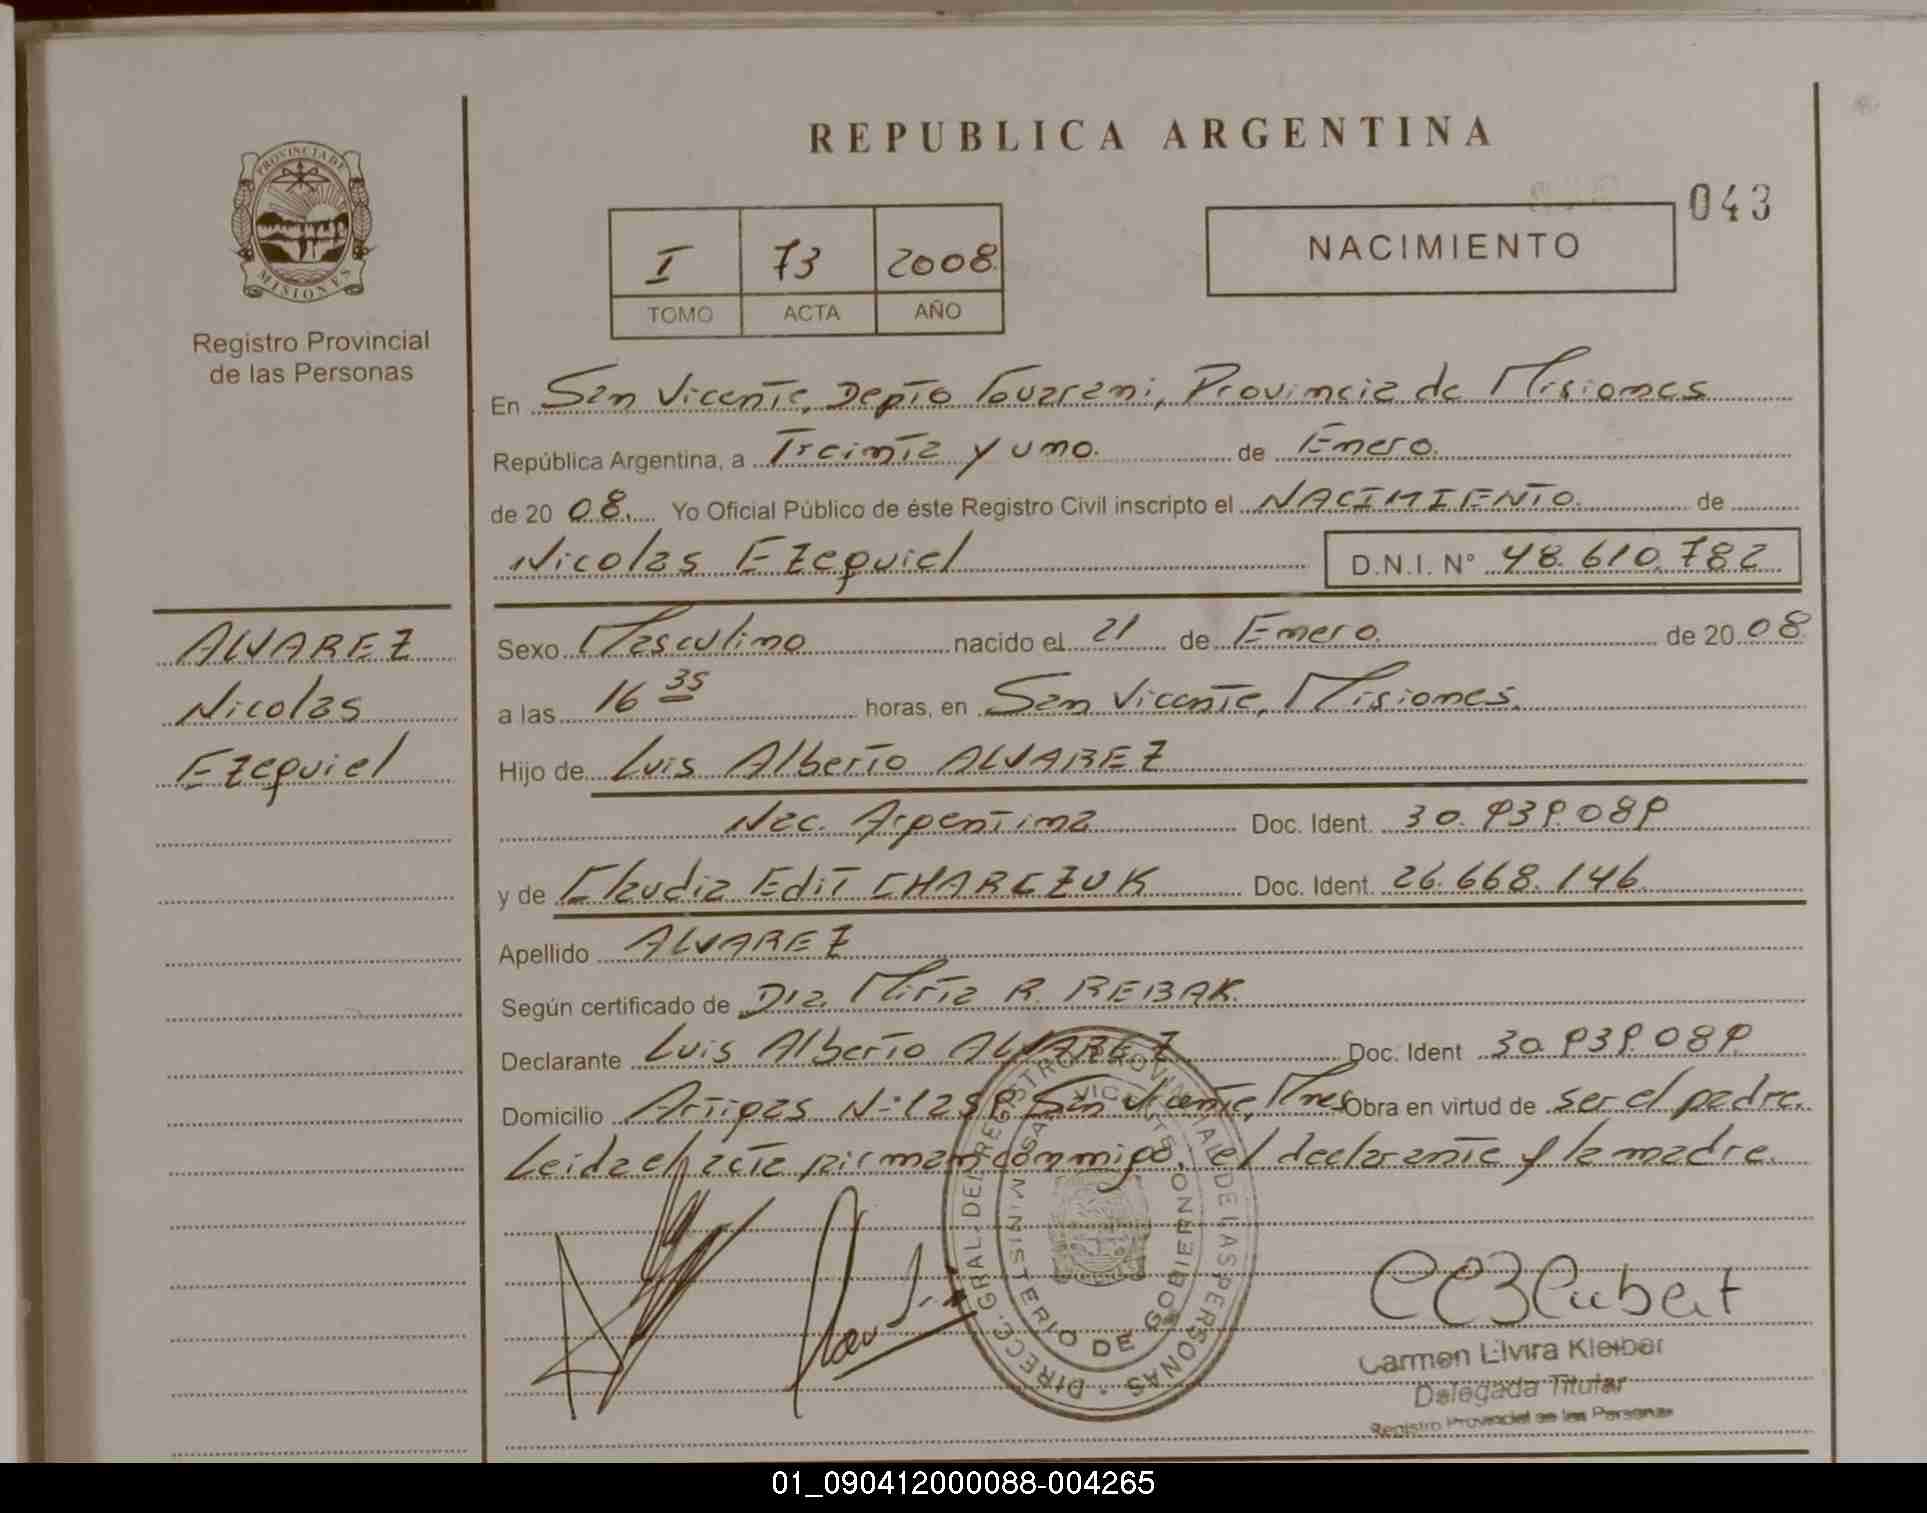 REPUBLICA ARGENTINA
PROVINCIA DE
MISIONES
Registro Provincial
de las Personas
043
NACIMIENTO
I 73 2008
TOMO ACTA AÑO
En San Vicente, Depto Guarani, Provincia de Misiones
República Argentina, a Treinta y uno. de Enero.
de 20 08. Yo Oficial Público de éste Registro Civil inscripto el NACIMIENTO. de
Nicolas Ezequiel D.N.I. N° 48.610.782
ALVAREZ
Nicolas
Ezequiel
Sexo Masculino nacido el 21 de Enero. de 20 08
a las 16 35 horas, en San Vicente, Misiones.
Hijo de Luis Alberto ALVAREZ
Nac. Argentina Doc. Ident. 30.939.089
y de Claudia Edit CHARCZUK Doc. Ident. 26.668.146.
Apellido ALVAREZ
Según certificado de Dra. Mirta R. REBAK.
Declarante Luis Alberto ALVAREZ Doc. Ident 30.939.089
Domicilio Artigas N° 1259 San Vicente, Mnes Obra en virtud de ser el padre.
Leida el acta firman conmigo, el declarante y la madre.
DIRECC. GRAL. DEL REGISTRO PROVINCIAL DE LAS PERSONAS
MINISTERIO DE GOBIERNO
SAN VICENTE
Carmen Elvira Kleiber
Delegada Titular
Registro Provincial de las Personas
01_090412000088-004265